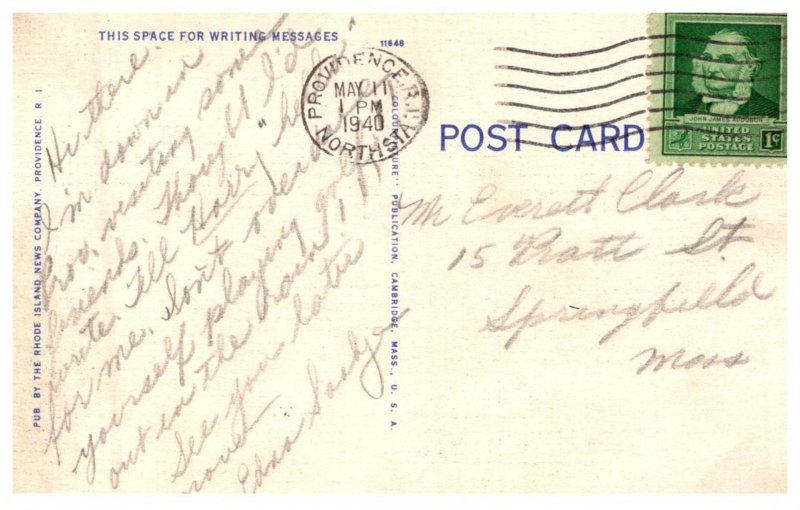 THIS SPACE FOR WRITING MESSAGES
11648
Hi there.
I'm down in
Prov. visiting some
friends. Thought I'd
write. Tell Harry "hello"
for me. Don't overdo
yourself playing golf
out in the rain!!!
See you later
Edna
PUB. BY THE RHODE ISLAND NEWS COMPANY, PROVIDENCE, R. I.
PUBLICATION, CAMBRIDGE, MASS., U. S. A.
PROVIDENCE, R.I.
MAY 11
1 PM
1940
NORTH STA.
JOHN JAMES AUDUBON
UNITED
STATES
POSTAGE 1¢
POST CARD
Mr Everett Clark
15 Pratt St.
Springfield
Mass